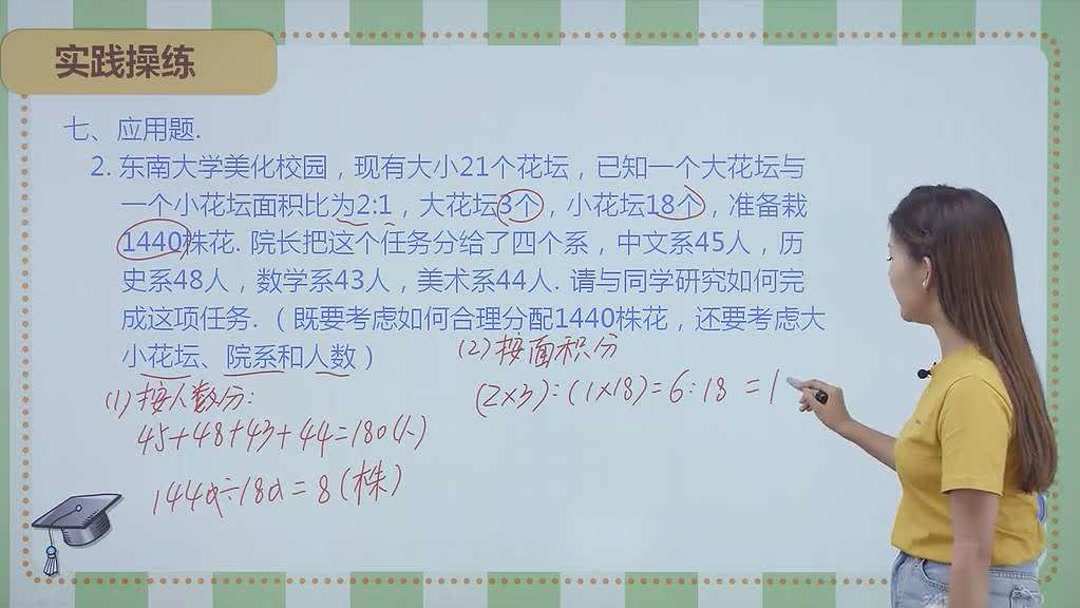 实践操练
七、应用题.
2. 东南大学美化校园，现有大小21个花坛，已知一个大花坛与
一个小花坛面积比为2:1，大花坛3个，小花坛18个，准备栽
1440株花. 院长把这个任务分给了四个系，中文系45人，历
史系48人，数学系43人，美术系44人. 请与同学研究如何完
成这项任务.（既要考虑如何合理分配1440株花，还要考虑大
小花坛、院系和人数）
(1) 按人数分:
45+48+43+44=180(人)
1440÷180=8(株)
(2) 按面积分
(2×3):(1×18)=6:18=1